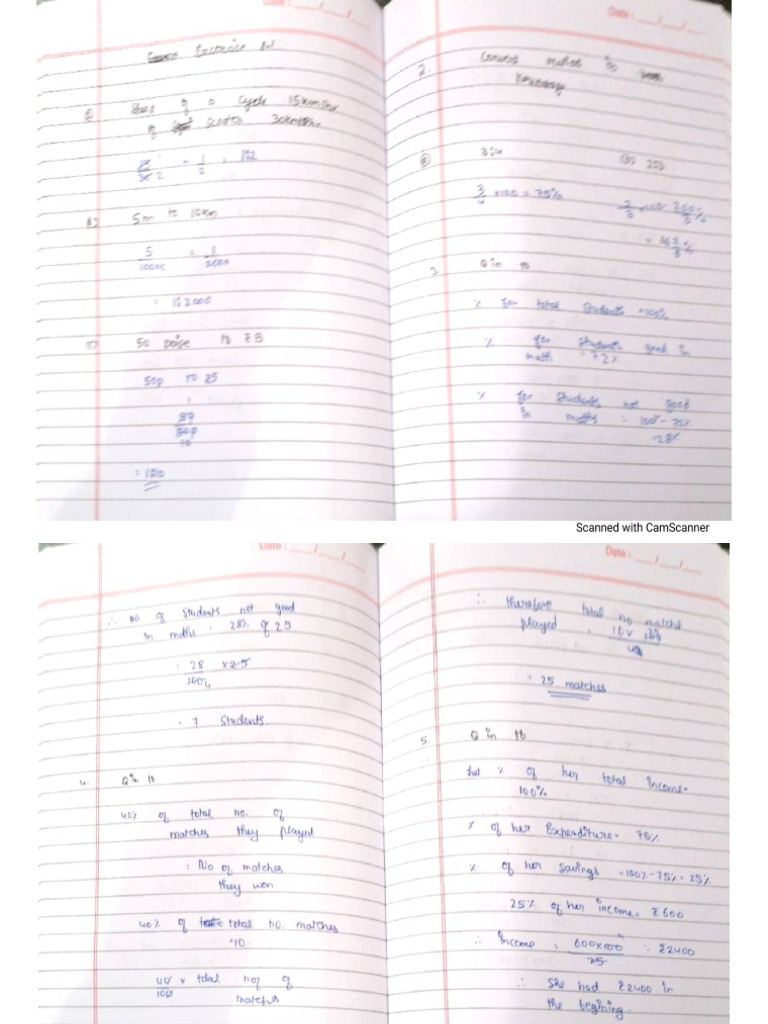 Date : __/__/__
Exercise
Speed of a Cycle 15km/hr
of Scooter 30km/hr
= 1/2 = 1:2
b) 5m to 10km
5/10000 = 1/2000
= 1:2000
50 paise to ₹5
50p to
= 1:10
Date : __/__/__
2. Convert ratios to
percentage
3:4
(b) 2:3
3/4 x100 = 75%
2/3 x100 200/3 %
= %
3. Q in tb
% for total Students = 100%
% for Students good in
math = 72%
% for Students not good
in maths = 100% - 72%
= 28%
Scanned with CamScanner
Date : __/__/__
∴ no of Students not good
in maths = 28% of 25
= 28/100 x 25
= 7 Students.
4. Q in tb
40% of total no. of
matches they played
= No of matches
they won
40% of total no. matches
=10
40/100 x total no of
matches
Date : __/__/__
∴ therefore total no matchs
played = 10 x 100/40
= 25 matches
5. Q in tb
let % of her total Income=
100%
% of her Expenditure= 75%
% of her Savings =100%-75% = 25%
25% of her income= ₹600
∴ Income = 600x100/25 = ₹2400
∴ She had ₹2400 in
the begining.